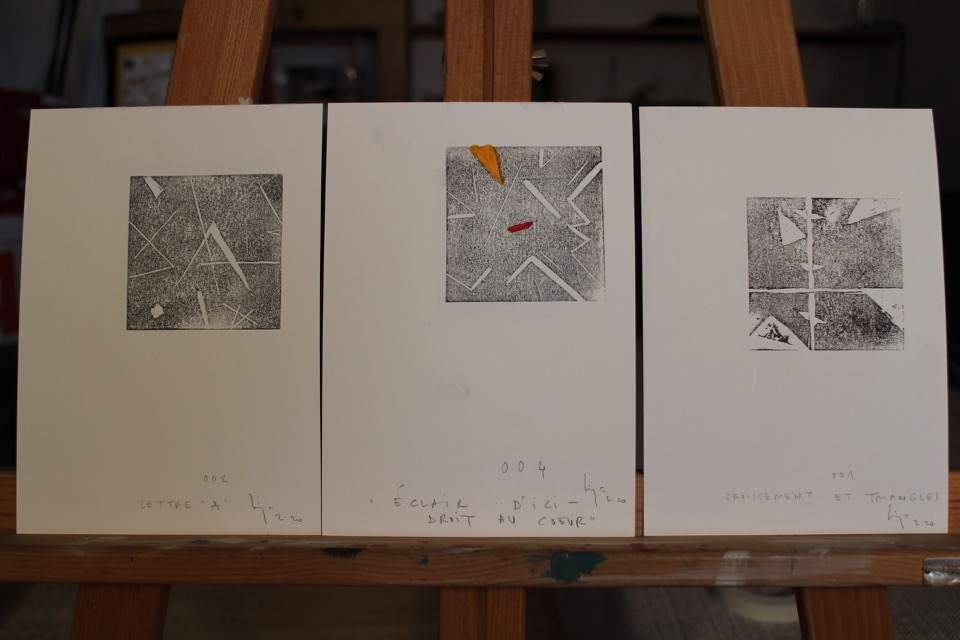 002
LETTRE "A"
2.20
004
"ÉCLAIR D'ICI -
DROIT AU COEUR"
2.20
001
CROISEMENT ET TRIANGLES
2.20